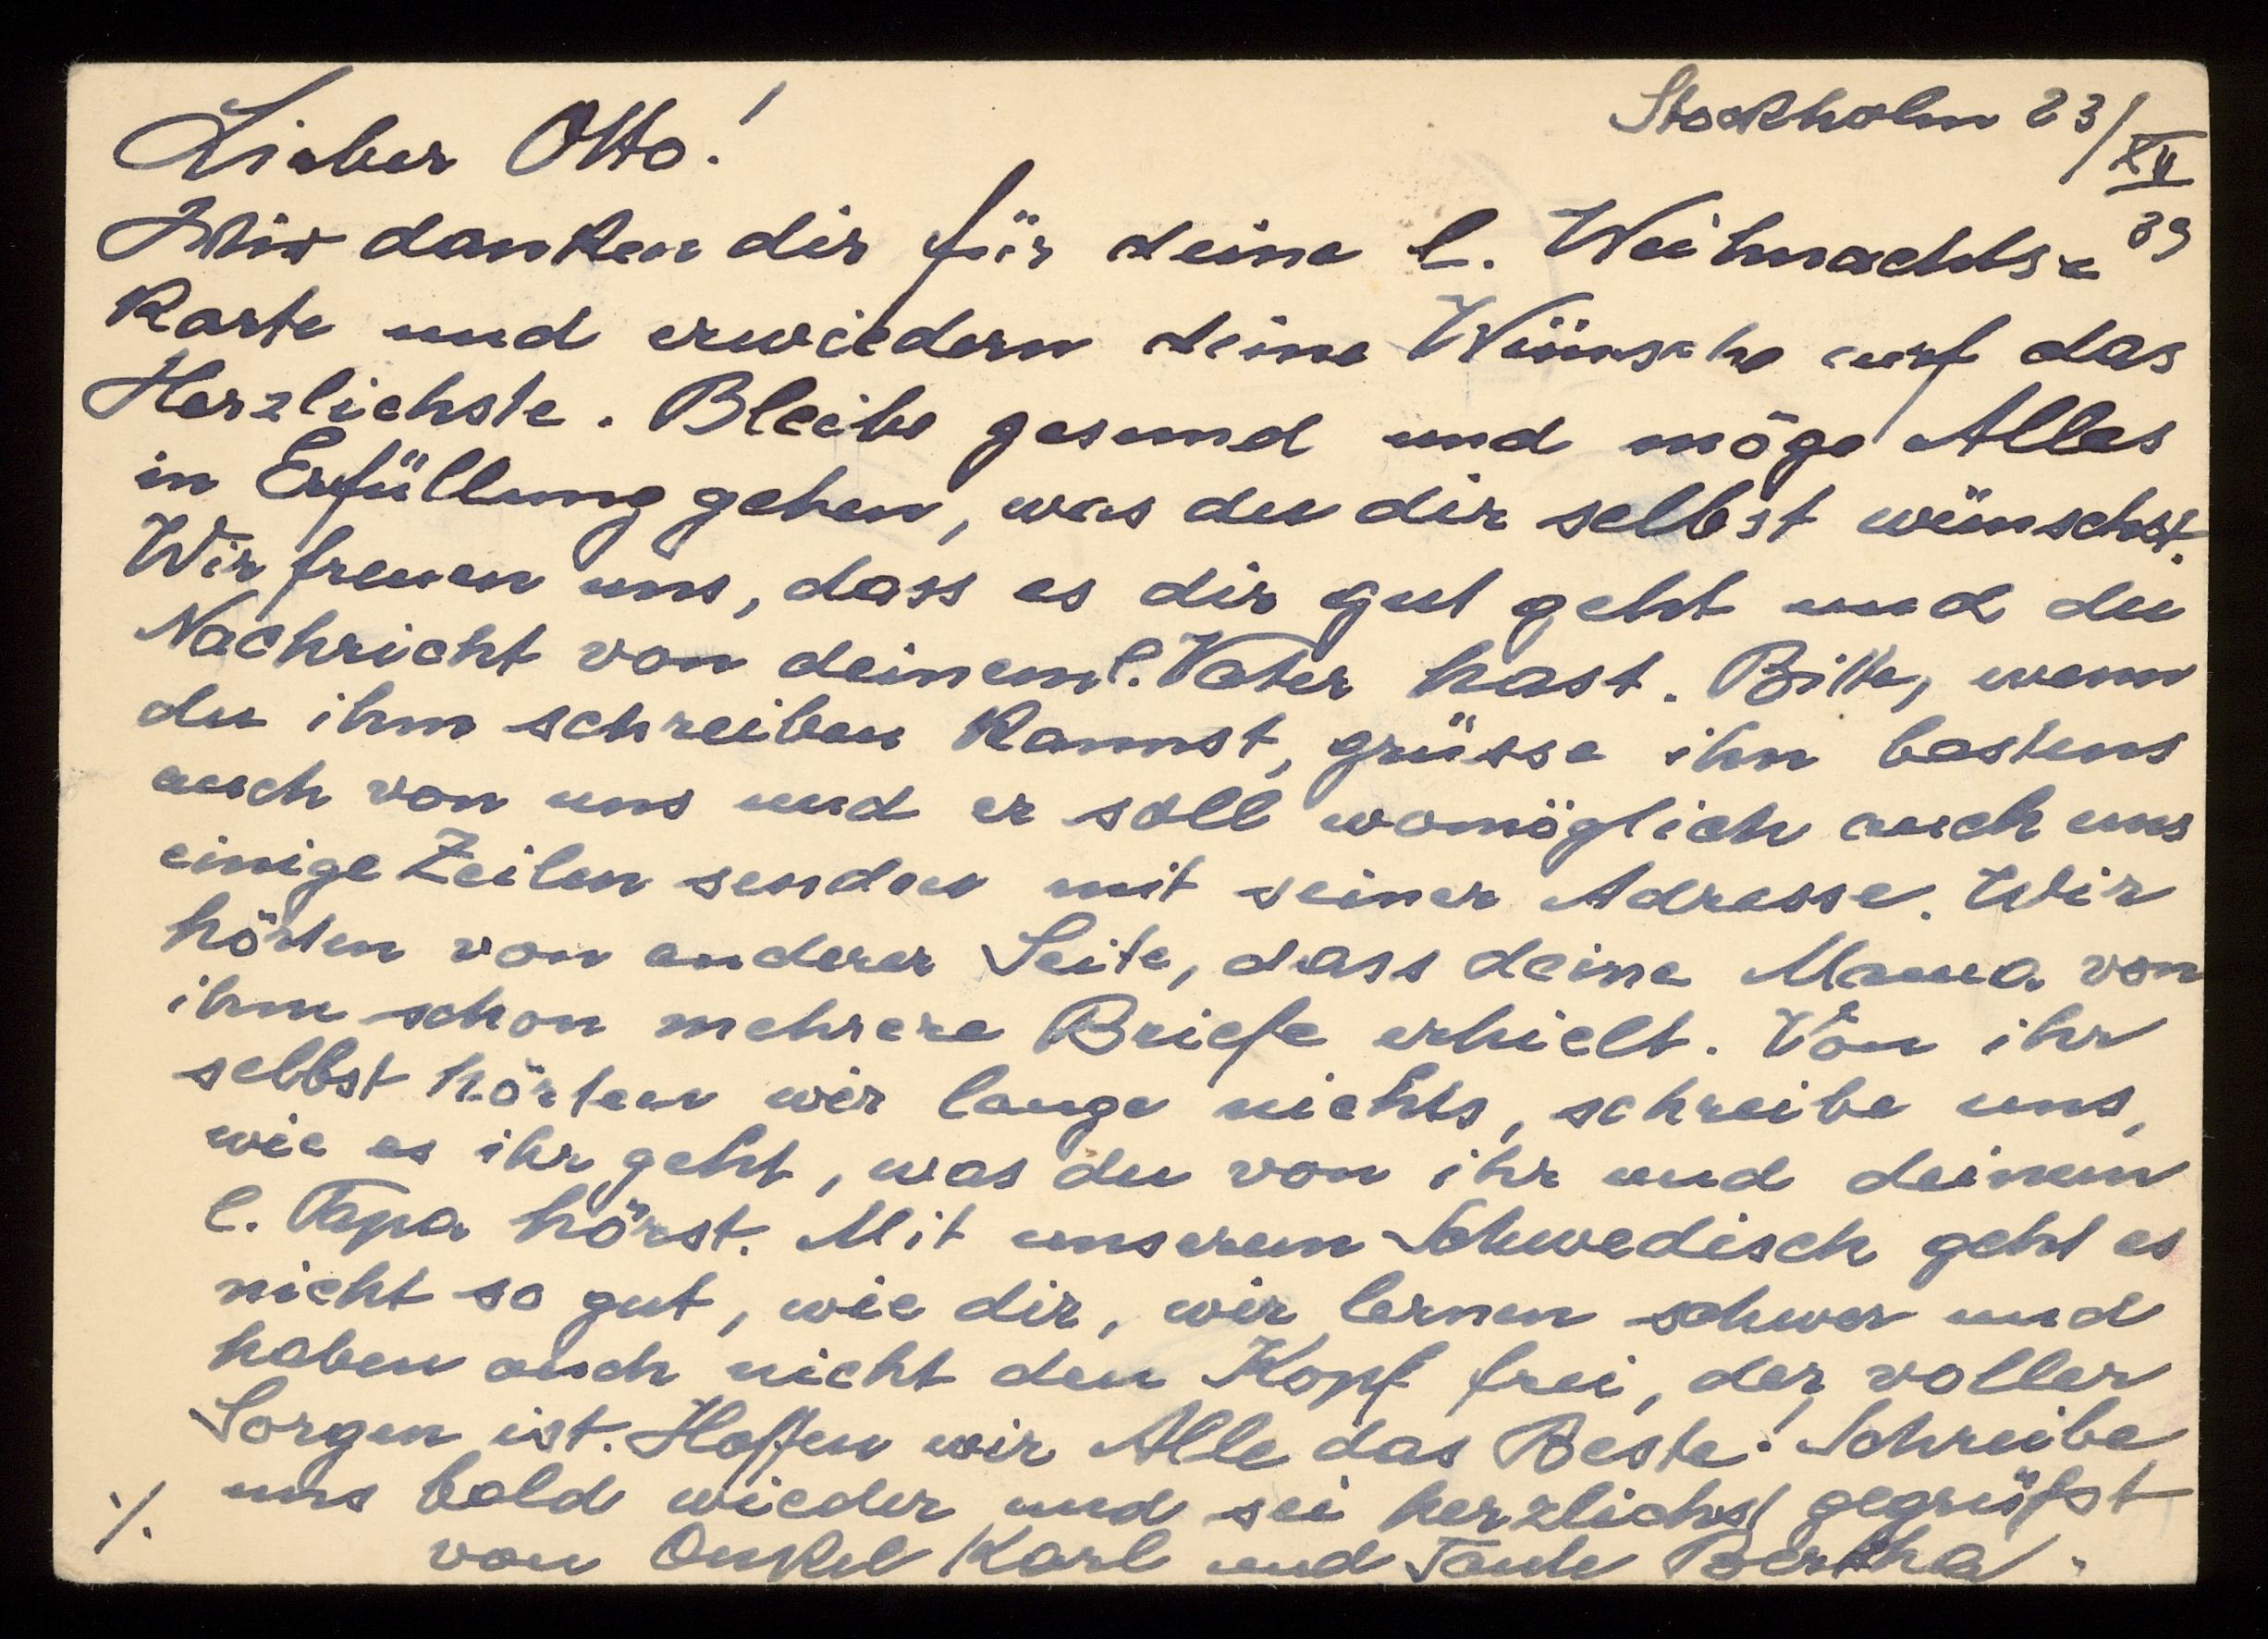 Stockholm 23/XII
39
Lieber Otto!
Wir danken dir für deine l. Weihnachts=
karte und erwiedern deine Wünsche auf das
Herzlichste. Bleibe gesund und möge Alles
in Erfüllung gehen, was du dir selbst wünschst.
Wir freuen uns, dass es dir gut geht und du
Nachricht von deinem l. Vater hast. Bitte, wenn
du ihm schreiben kannst, grüsse ihn bestens
auch von uns und er soll womöglich auch uns
einige Zeilen senden mit seiner Adresse. Wir
hörten von anderer Seite, dass deine Mama von
ihm schon mehrere Briefe erhielt. Von ihr
selbst hörten wir lange nichts, schreibe uns,
wie es ihr geht, was du von ihr und deinem
l. Papa hörst. Mit unserem Schwedisch geht es
nicht so gut, wie dir, wir lernen schwer und
haben auch nicht den Kopf frei, der voller
Sorgen ist. Hoffen wir Alle das Beste! Schreibe
uns bald wieder und sei herzlichst gegrüßt
von Onkel Karl und Tante Bertha.
./.